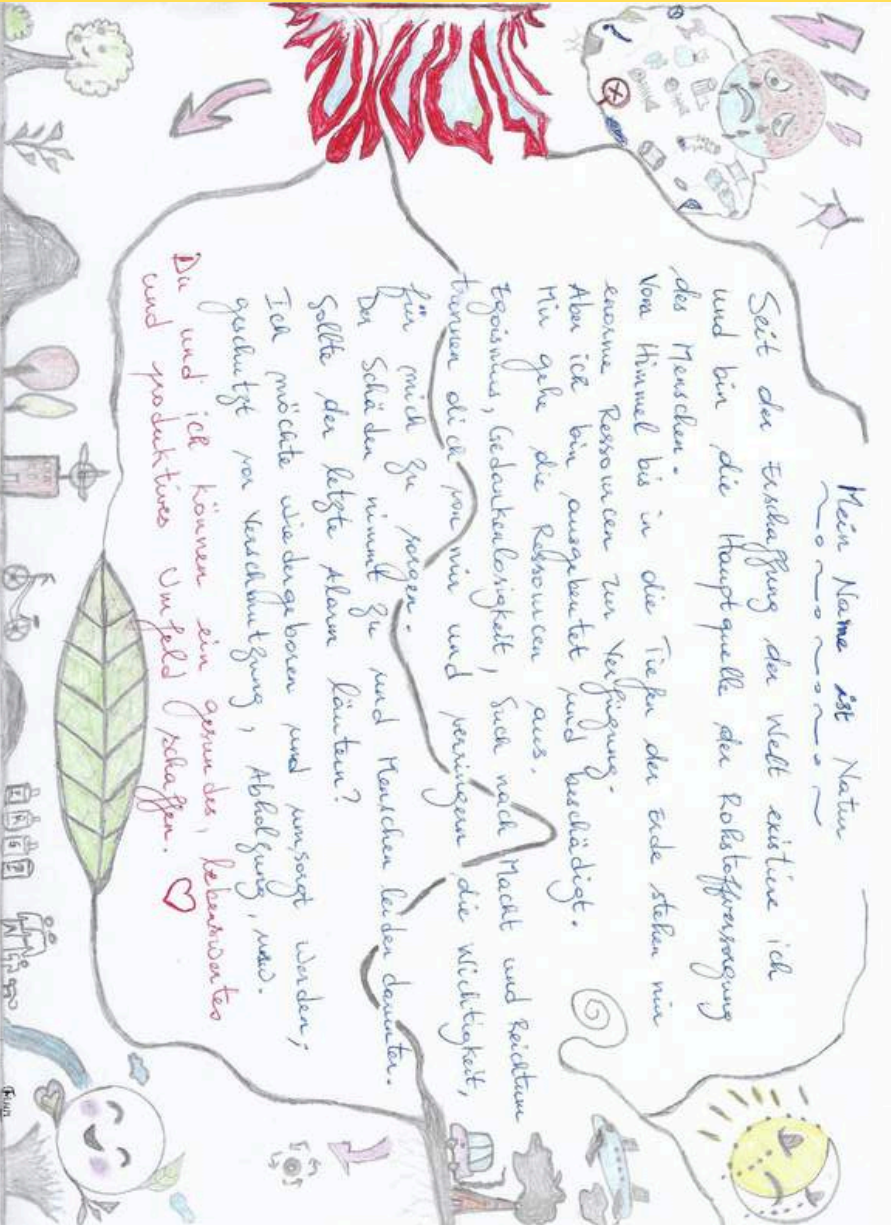 Mein Name ist Natur
Seit der Erschaffung der Welt existiere ich
und bin die Hauptquelle der Rohstoffversorgung
des Menschen.
Vom Himmel bis in die Tiefen der Erde stehen mir
enorme Ressourcen zur Verfügung.
Aber ich bin ausgebeutet und beschädigt.
Mir gehe die Ressourcen aus.
Egoismus, Gedankenlosigkeit, Such nach Macht und Reichtum
trennen dich von mir und verringern die Wichtigkeit,
für mich zu sorgen.
Der Schäden nimmt zu und Menschen leiden darunter.
Sollte der letzte Alarm läuten?
Ich möchte wiedergeboren und umsorgt werden;
geschützt vor Verschmutzung, Abholzung, usw.
Du und ich können ein gesundes, lebenswertes
und produktives Umfeld schaffen.